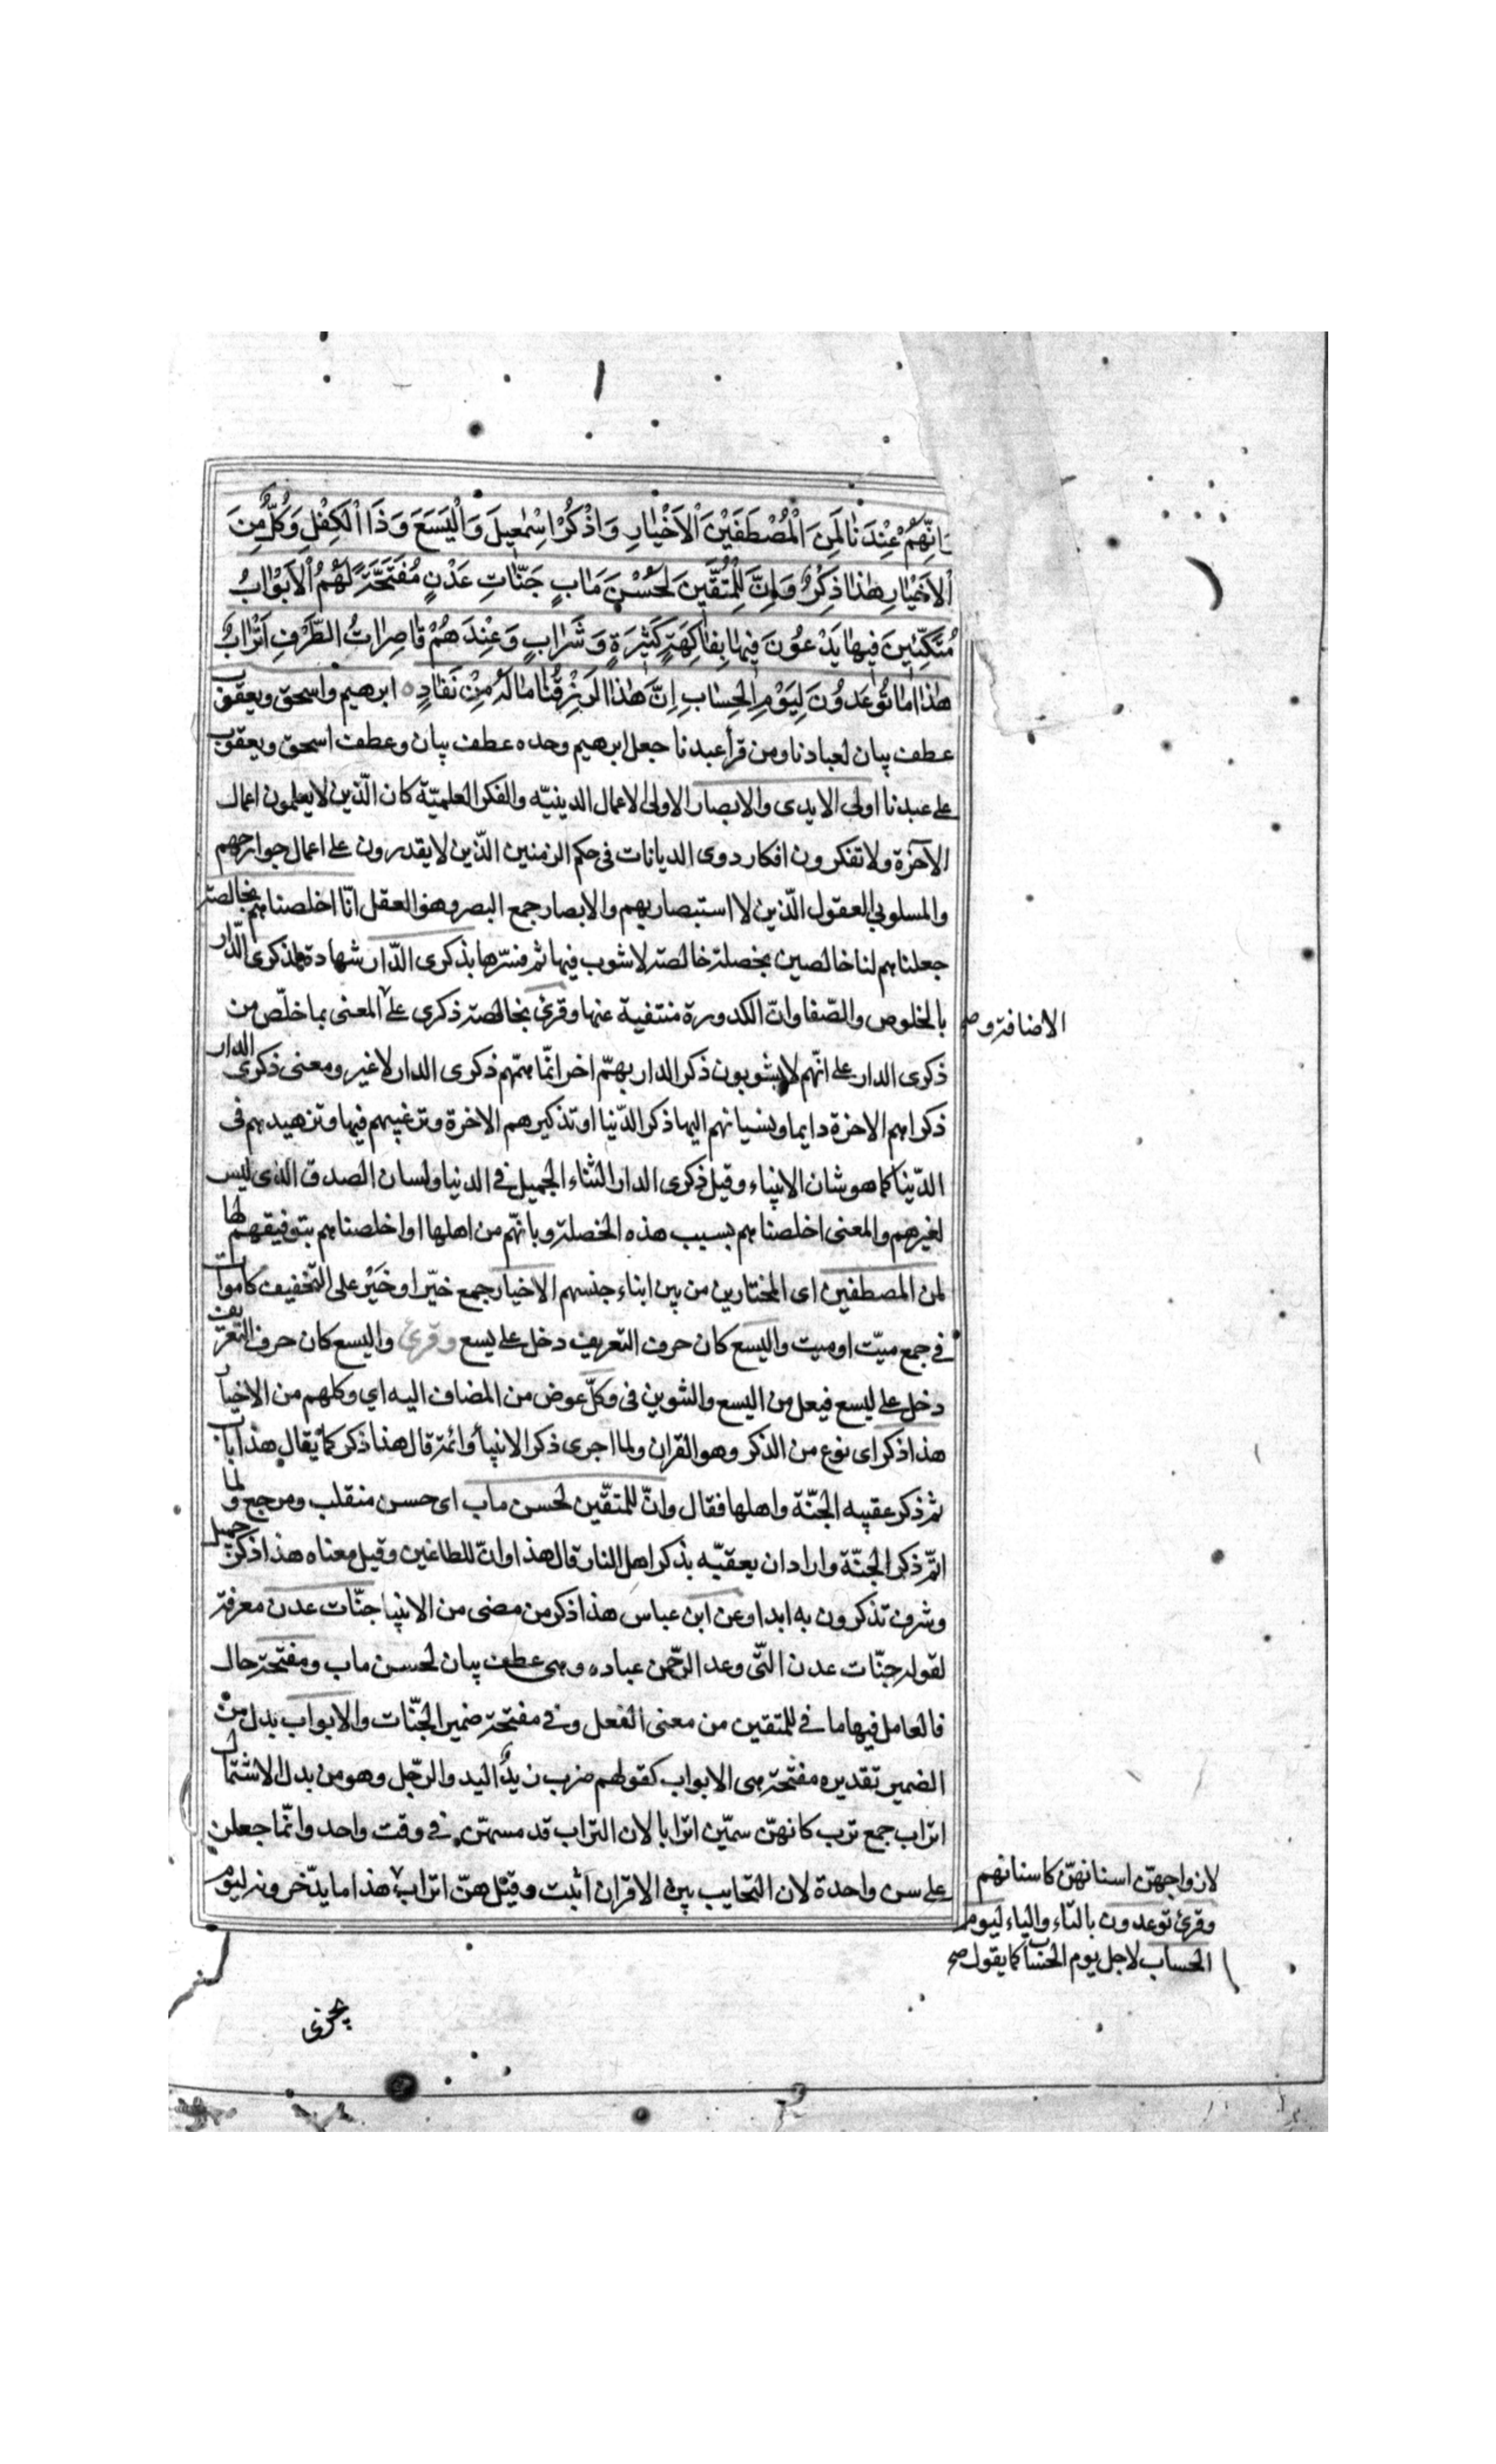 وَاِنَّهُمْ عِنْدَنَا لَمِنَ الْمُصْطَفَيْنَ الْاَخْيَارِ وَاذْكُرْ اِسْمٰعِيلَ وَالْيَسَعَ وَذَا الْكِفْلِ وَكُلٌّ مِنَ
الْاَخْيَارِ هٰذَا ذِكْرٌ وَاِنَّ لِلْمُتَّقِينَ لَحُسْنَ مَاٰبٍ جَنَّاتِ عَدْنٍ مُفَتَّحَةً لَهُمُ الْاَبْوَابُ
مُتَّكِئِينَ فِيهَا يَدْعُونَ فِيهَا بِفَاكِهَةٍ كَثِيرَةٍ وَشَرَابٍ وَعِنْدَهُمْ قَاصِرَاتُ الطَّرْفِ اَتْرَابٌ
هٰذَا مَا تُوعَدُونَ لِيَوْمِ الْحِسَابِ اِنَّ هٰذَا لَرِزْقُنَا مَا لَهُ مِنْ نَفَادٍ ابرهيم واسحق ويعقوب
عطف بيان لعبادنا ومن قرأ عبدنا جعل ابرهيم وحده عطف بيان وعطف اسحق ويعقوب
على عبدنا اولى الايدى والابصار الاولى الاعمال الدينيّه والفكر العلميّة كان الّذين لا يعلمون اعمال
الآخرة ولا تفكرون افكار دوى الديانات فى حكم الزمنين الّذين لا يقدرون على اعمال جوارحهم
والمسلوبي العقول الّذين لا استبصار بهم والابصار جمع البصر وهو العقل انّا اخلصناهم بخالصة
جعلناهم لنا خالصين بخصلة خالصة لا شوب فيها ثم فسّرها بذكرى الدّار شهادة لذكرى الدّار
بالخلوص والصّفا وانّ الكدورة منتفية عنها وقرئ بخالصة ذكرى على المعنى بما خلّص من
الاضافة و صح
ذكرى الدار على انّهم لا يشوبون ذكر الدار بهمّ اخر انّما همّهم ذكرى الدار لا غير ومعنى ذكرى الدار
ذكراهم الاخرة دايما ونسيانهم اليها ذكر الدّنيا او تذكيرهم الاخرة وترغيبهم فيها وتزهيدهم فى
الدّنيا كما هو شان الانبياء وقيل ذكرى الدار الثناء الجميل فى الدنيا ولسان الصدق الذى ليس
لغيرهم والمعنى اخلصناهم بسبب هذه الخصلة وبانّهم من اهلها او اخلصناهم بتوفيقهم لها
لمن المصطفين اى المختارين من بين ابناء جنسهم الاخيار جمع خيّر او خَيْر على التّخفيف كاموات
فى جمع ميّت او ميت واليسع كان حرف التعريف دخل على يسع وقرئ واليسع كان حرف التعريف
دخل على ليسع فيعل من اليسع والتنوين فى وكلّ عوض من المضاف اليه اي وكلهم من الاخيار
هذا ذكر اى نوع من الذكر وهو القران ولما اجرى ذكر الانبيأ وائمة قال هذا ذكر كما يقال هذا باب
ثم ذكر عقيبه الجنّة واهلها فقال وانّ للمتقّين لحسن ماب اى حسن منقلب ومرجع ولما
اتمّ ذكر الجنّة واراد ان يعقبّه بذكر اهل النار قال هذا وانّ للطاغين وقيل معناه هذا ذكر جميل
وشرف تذكرون به ابدا وعن ابن عباس هذا ذكر من مضى من الانبيا جنّات عدن معرفة
لقوله جنّات عدن التّى وعد الرحّمن عباده وهى عطف بيان لحسن ماب ومفتحة حال
فالعامل فيها ما فى للمتقين من معنى الفعل وفى مفتحة ضمير الجنّات والابواب بدل من
الضمير تقديره مفتّحة هى الابواب كقولهم ضرب زيدٌ اليد والرّجل وهو من بدل الاشتمال
اتراب جمع ترب كانهنّ سمّين اترابا لان التراب قد مسهنّ فى وقت واحد وانّما جعلن
على سن واحدة لان التحابب بين الاقران اثبت وقيل هنّ اتراب هذا ما يدّخرونه ليوم
لازواجهنّ اسنانهنّ كاسنانهم
وقرئ توعدون بالتاء والياء ليوم
الحساب لاجل يوم الحساب كما يقول صح